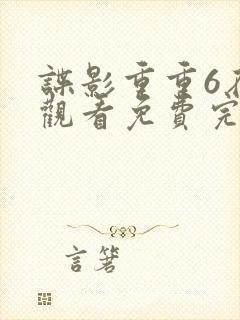 諜影重重6
觀看免費完
言箸